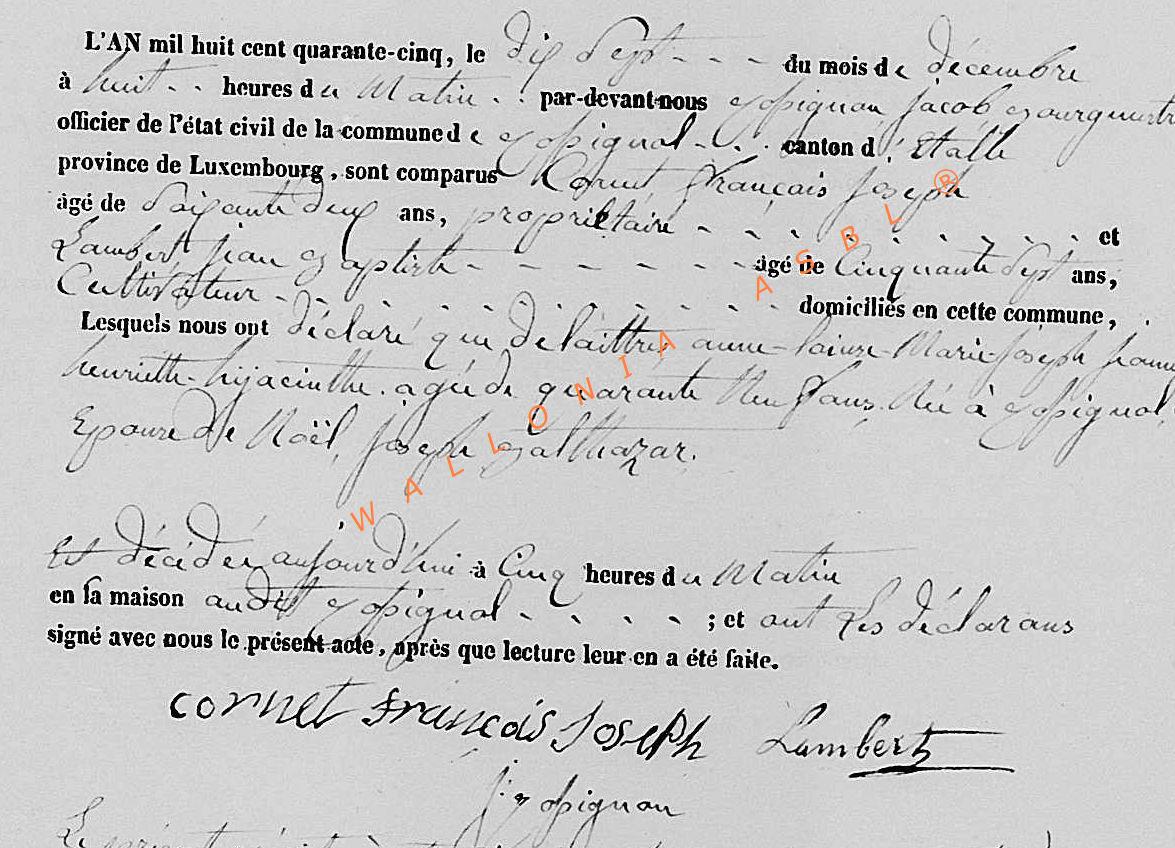 L'AN mil huit cent quarante-cinq, le dix Sept - - - du mois de décembre
à huit - - heures du Matin - - par-devant nous jacob Bourgmestre
officier de l'état civil de la commune de canton d'Etalle
province de Luxembourg, sont comparus Cornet françois Joseph
âgé de Soixante deux ans, propriétaire - - - - - - - - - et
Lambert jean Baptiste - - - - - - - âgé de Cinquante Sept ans,
Cultivateur - - - - - - - - - - - domiciliés en cette commune,
Lesquels nous ont déclaré que Delaittre anne-louise-Marie-Joseph
henriette-hijacinthe. agée de quarante Neuf ans. Née à
Epouse de Noël, Joseph Balthazar.
Est décidée aujourd'hui à Cinq heures du Matin
en sa maison audit - - - - ; et ont Les déclarans
signé avec nous le présent acte, après que lecture leur en a été faite.
cornet françois Joseph Lambert
WALLONIA ASBL ®